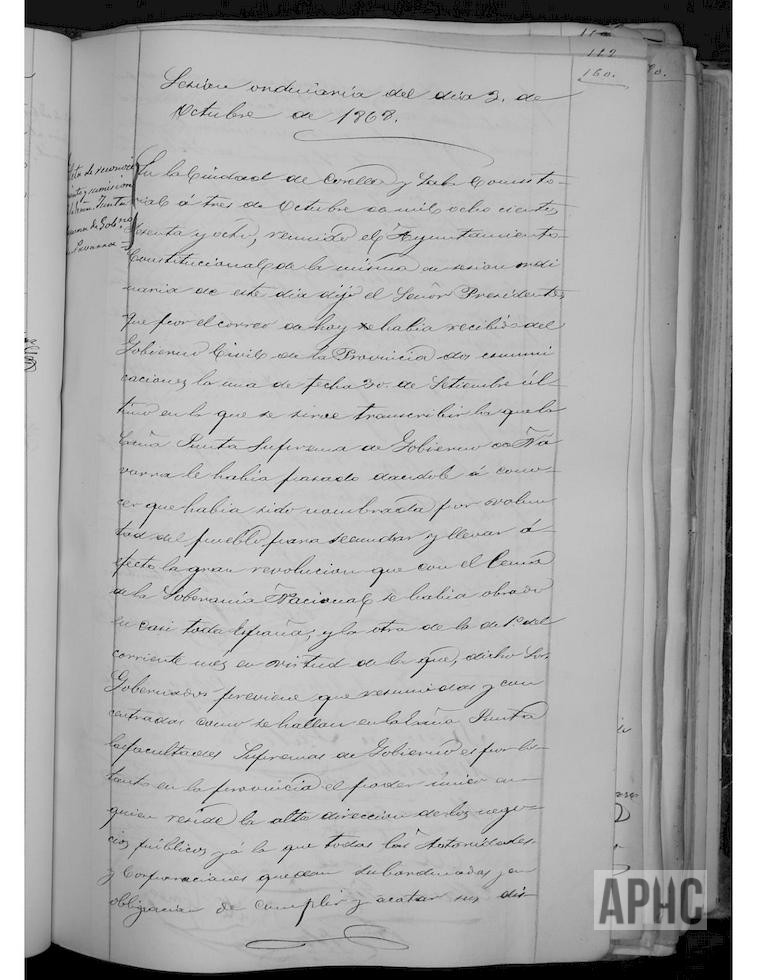 112
160.
Sesion ordinaria del dia 3. de
Octubre de 1868.
Acta de reconoci
miento y sumision
Junta
de Gobno
Navarra
En la Ciudad de Corella y Sala Consisto-
rial á tres de Octubre de mil ocho cientos
sesenta y ocho, reunido el Ayuntamiento
Constitucional de la misma en sesion ordi
naria de este dia dijo el Señor Presidente,
que por el correo de hoy se habia recibido del
Gobierno Civil de la Provincia dos comuni
caciones, la una de fecha 30. de Setiembre úl-
timo en la que se sirve transcribir la que la
Exma Junta Suprema de Gobierno de Na
varra le habia pasado dandole á cono-
cer que habia sido nombrada por volun
tad del pueblo, para secundar y llevar á-
efecto la gran revolucion que con el Lema
de la Soberanía Nacional se habia obrado
en casi toda España; y la otra de la de 1º del
corriente mes en virtud de la que, dicho Sor.
Gobernador previene que resumidas y con
centradas como se hallan en la Exma Junta
las facultades Supremas de Gobierno es por lo
tanto en la provincia el poder único en
quien reside la alta direccion de los nego-
cios públicos, y á la que todas las Autoridades
y Corporaciones quedan subordinadas, en
obligacion de cumplir y acatar sus dis-
APHC